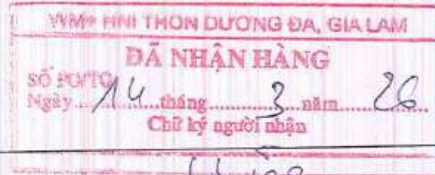 WM+ HNI THÔN DƯƠNG ĐÁ, GIA LÂM
ĐÃ NHẬN HÀNG
SỐ PO/TO
Ngày 14 tháng 3 năm 26
Chữ ký người nhận